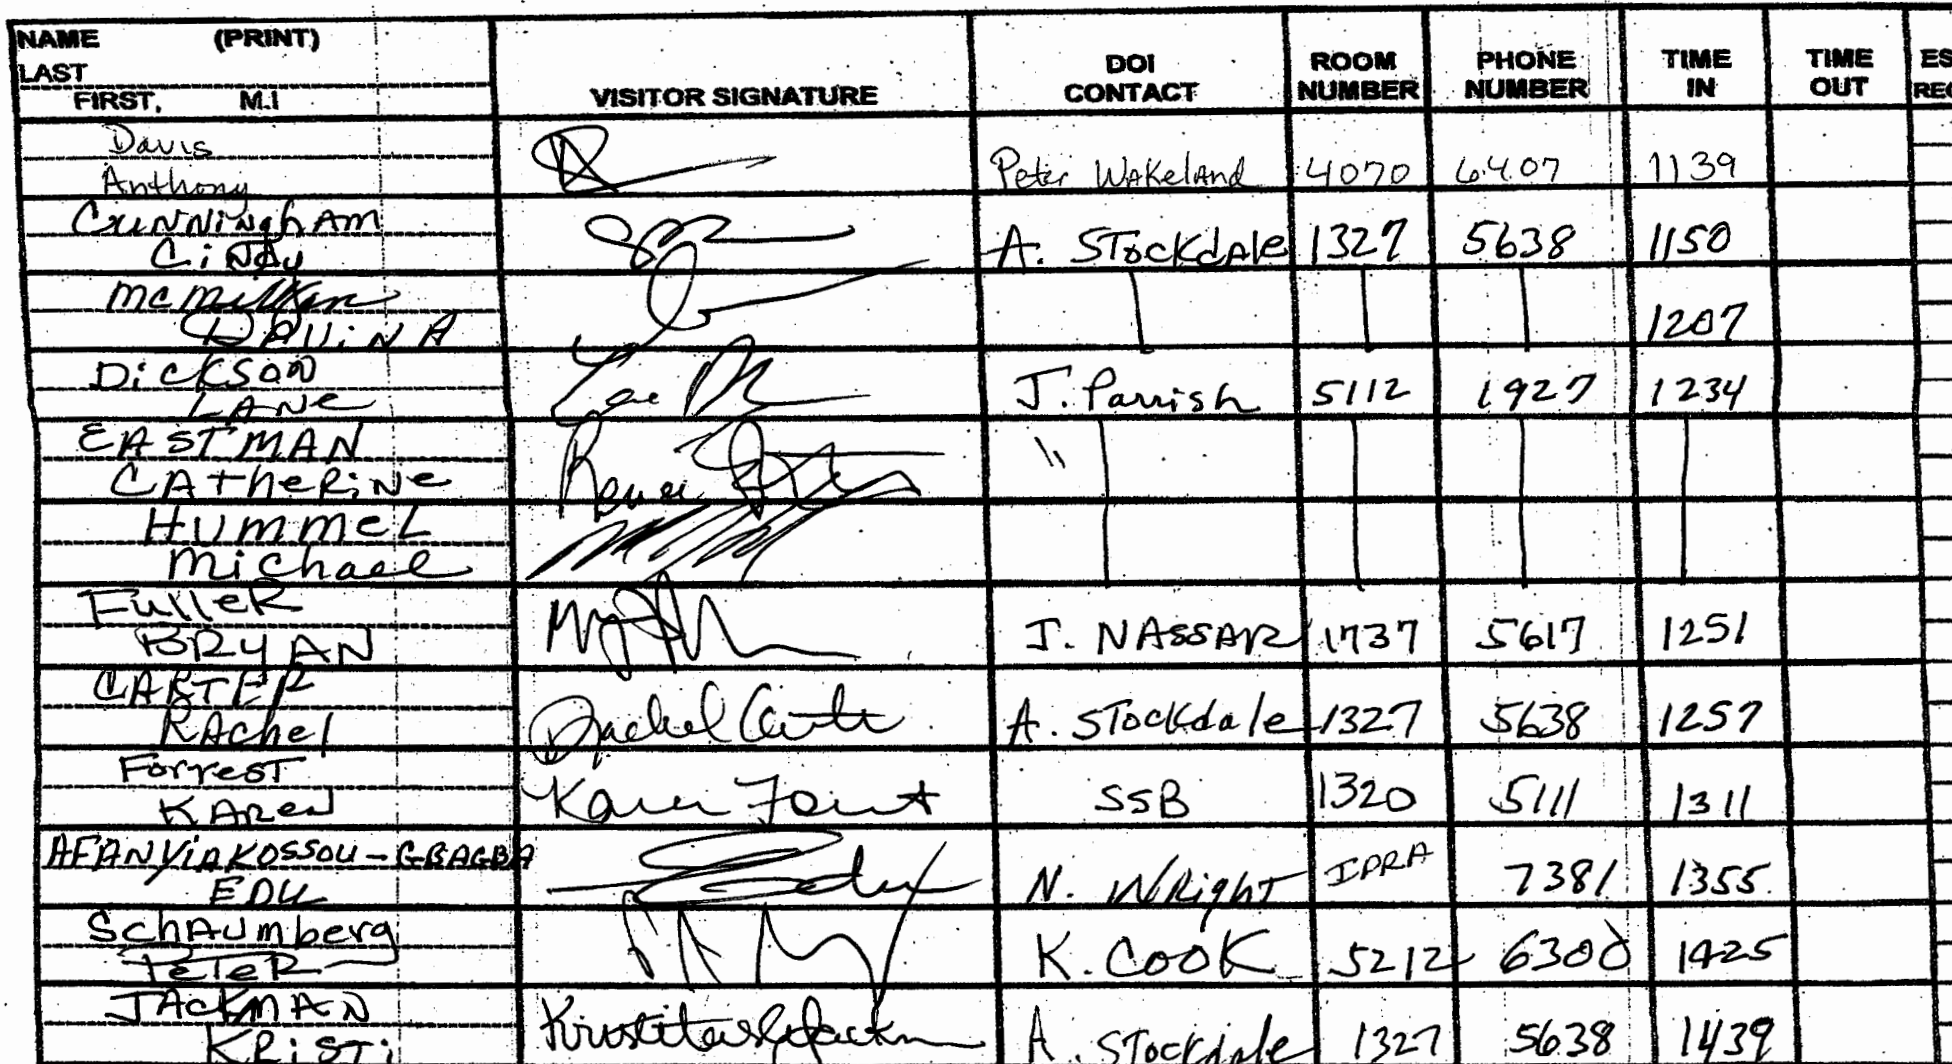 NAME (PRINT)
LAST
FIRST, M.I
VISITOR SIGNATURE
DOI
CONTACT
ROOM
NUMBER
PHONE
NUMBER
TIME
IN
TIME
OUT
Davis
Anthony
Peter Wakeland 4070 6407 1139
Cunningham
Cindy
A. Stockdale 1327 5638 1150
McMillan
DAVINA
1207
Dickson
LANE
J. Parrish 5112 1927 1234
EASTMAN
CATHERINE
"
HUMMEL
Michael
Fuller
BRYAN
J. NASSAR 1737 5617 1251
CARTER
RAchel
Rachel Carter
A. Stockdale 1327 5638 1257
Forrest
KAREN
Karen Forrest
SSB 1320 5111 1311
AFANYIAKOSSOU-GBAGBA
EDU
N. WRight IPRA 7381 1355
SchAumberg
PeTeR
K. COOK 5212 6300 1425
JAckMAN
KRiSTi
A. Stockdale 1327 5638 1439